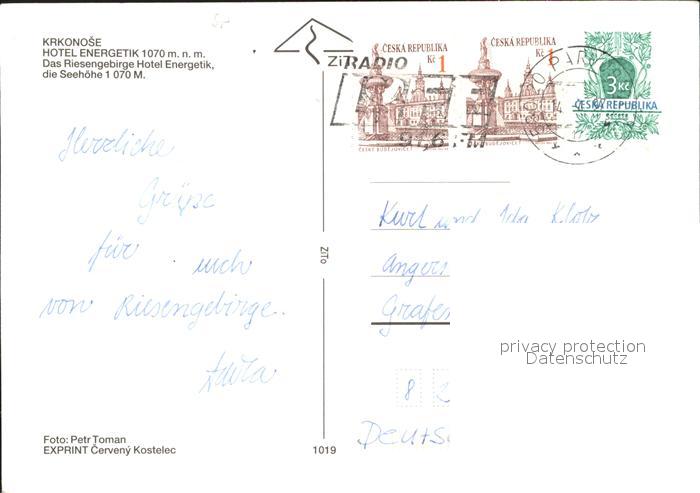 KRKONOŠE
HOTEL ENERGETIK 1070 m. n. m.
Das Riesengebirge Hotel Energetik,
die Seehöhe 1 070 M.
Herzliche
Grüße
für euch
von Riesengebirge.
Foto: Petr Toman
EXPRINT Červený Kostelec
ZiTo
1019
RADIO
91,6 FM
ČESKÁ REPUBLIKA
Kč 1
ČESKÉ BUDĚJOVICE
ČESKÁ REPUBLIKA
Kč 1
ČESKÉ BUDĚJOVICE
3 Kč
ČESKÁ REPUBLIKA
Kurt und Ida
Anger
Grafe
8
Deuts
privacy protection
Datenschutz